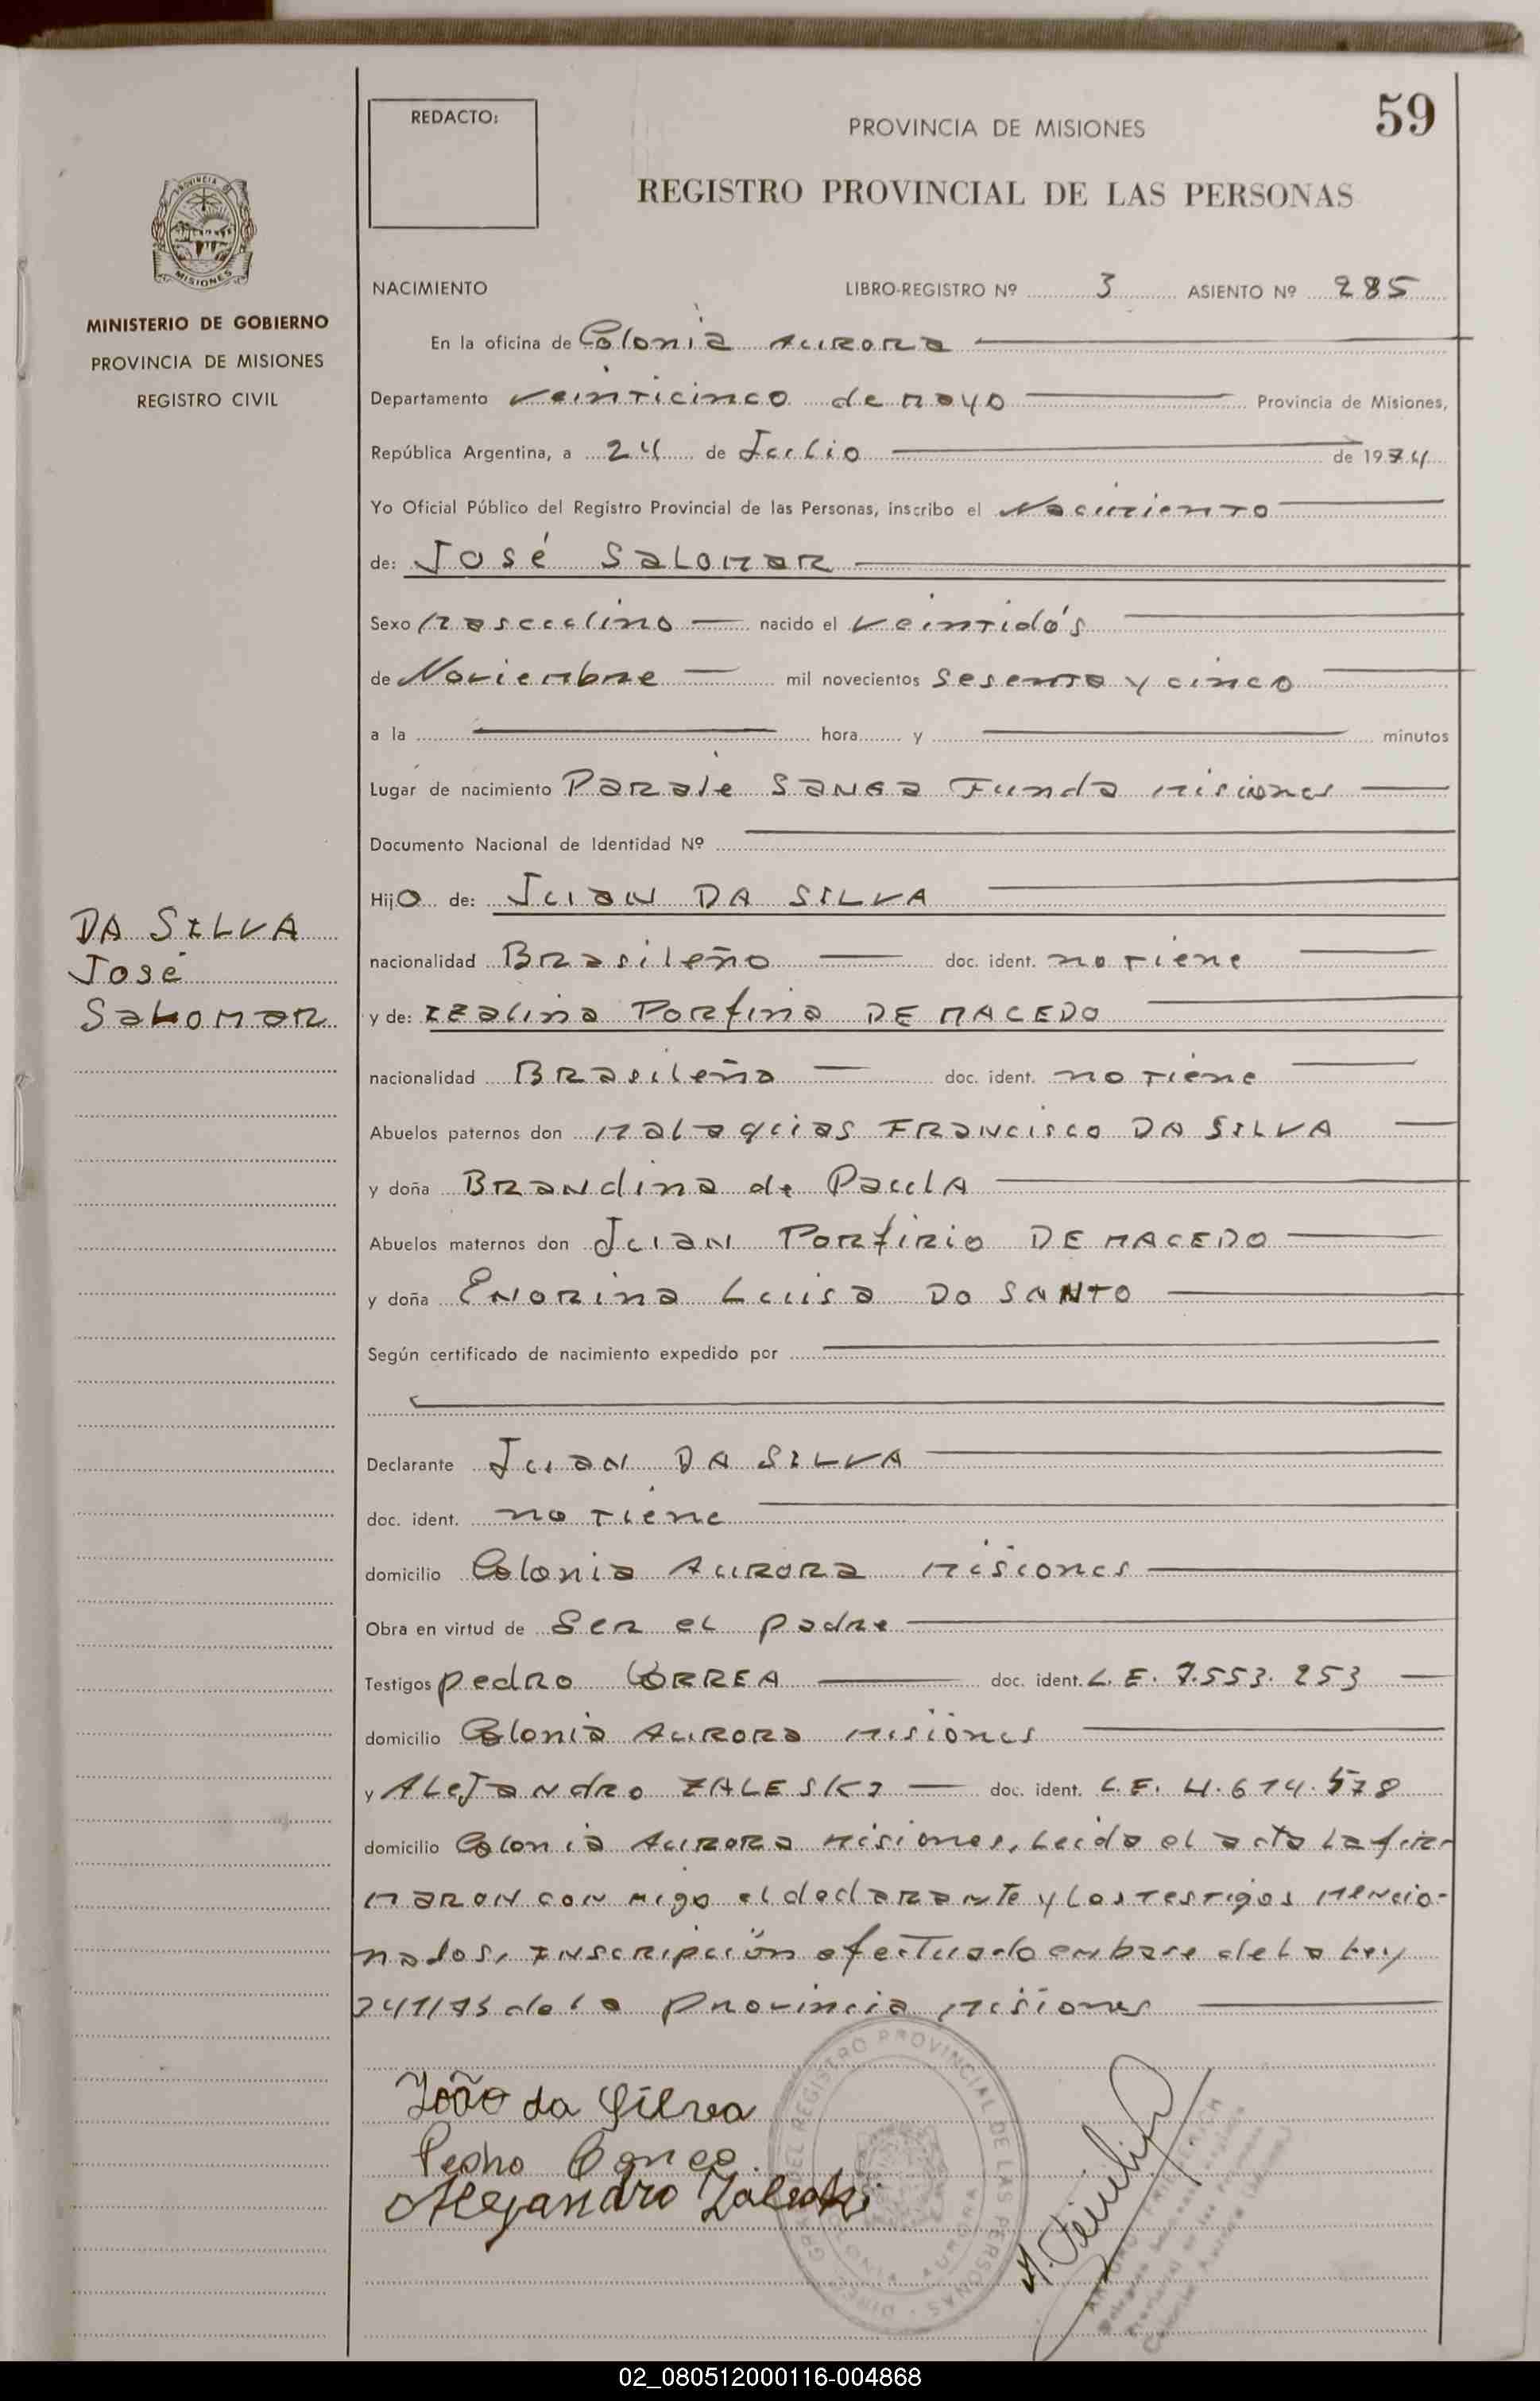 59
REDACTO:
PROVINCIA DE MISIONES
REGISTRO PROVINCIAL DE LAS PERSONAS
PROVINCIA DE
MISIONES
MINISTERIO DE GOBIERNO
PROVINCIA DE MISIONES
REGISTRO CIVIL
NACIMIENTO LIBRO-REGISTRO Nº 3 ASIENTO Nº 285
En la oficina de Colonia Aurora
Departamento veinticinco de mayo Provincia de Misiones,
República Argentina, a 24 de Julio de 1974
Yo Oficial Público del Registro Provincial de las Personas, inscribo el Nacimiento
de: José Salomar
Sexo masculino nacido el veintidós
de Noviembre mil novecientos sesenta y cinco
a la hora y minutos
Lugar de nacimiento Paraje Sanga Funda misiones
Documento Nacional de Identidad Nº
Hijo de: Juan DA SILVA
DA SILVA
José
Salomar
nacionalidad Brasileño doc. ident. no tiene
y de: Izalina Porfiria DE MACEDO
nacionalidad Brasileña doc. ident. no tiene
Abuelos paternos don Malaquias Francisco DA SILVA
y doña Brandina de Paula
Abuelos maternos don Juan Porfirio DE MACEDO
y doña Enorina Luisa DO SANTO
Según certificado de nacimiento expedido por
Declarante Juan DA SILVA
doc. ident. no tiene
domicilio Colonia Aurora misiones
Obra en virtud de Ser el padre
Testigos pedro CORREA doc. ident. L.E. 7.553.253
domicilio Colonia Aurora misiones
y Alejandro ZALESKI doc. ident. L.E. 4.614.578
domicilio Colonia Aurora misiones, Leida el acta la fir-
maron con migo el declarante y los testigos mencio-
nados, Inscripción efectuado en base de la Ley
241/73 de la Provincia misiones
João da Silva
Pedro
Alejandro Zaleski
DEL REGISTRO PROVINCIAL DE LAS PERSONAS
AURORA
02_080512000116-004868